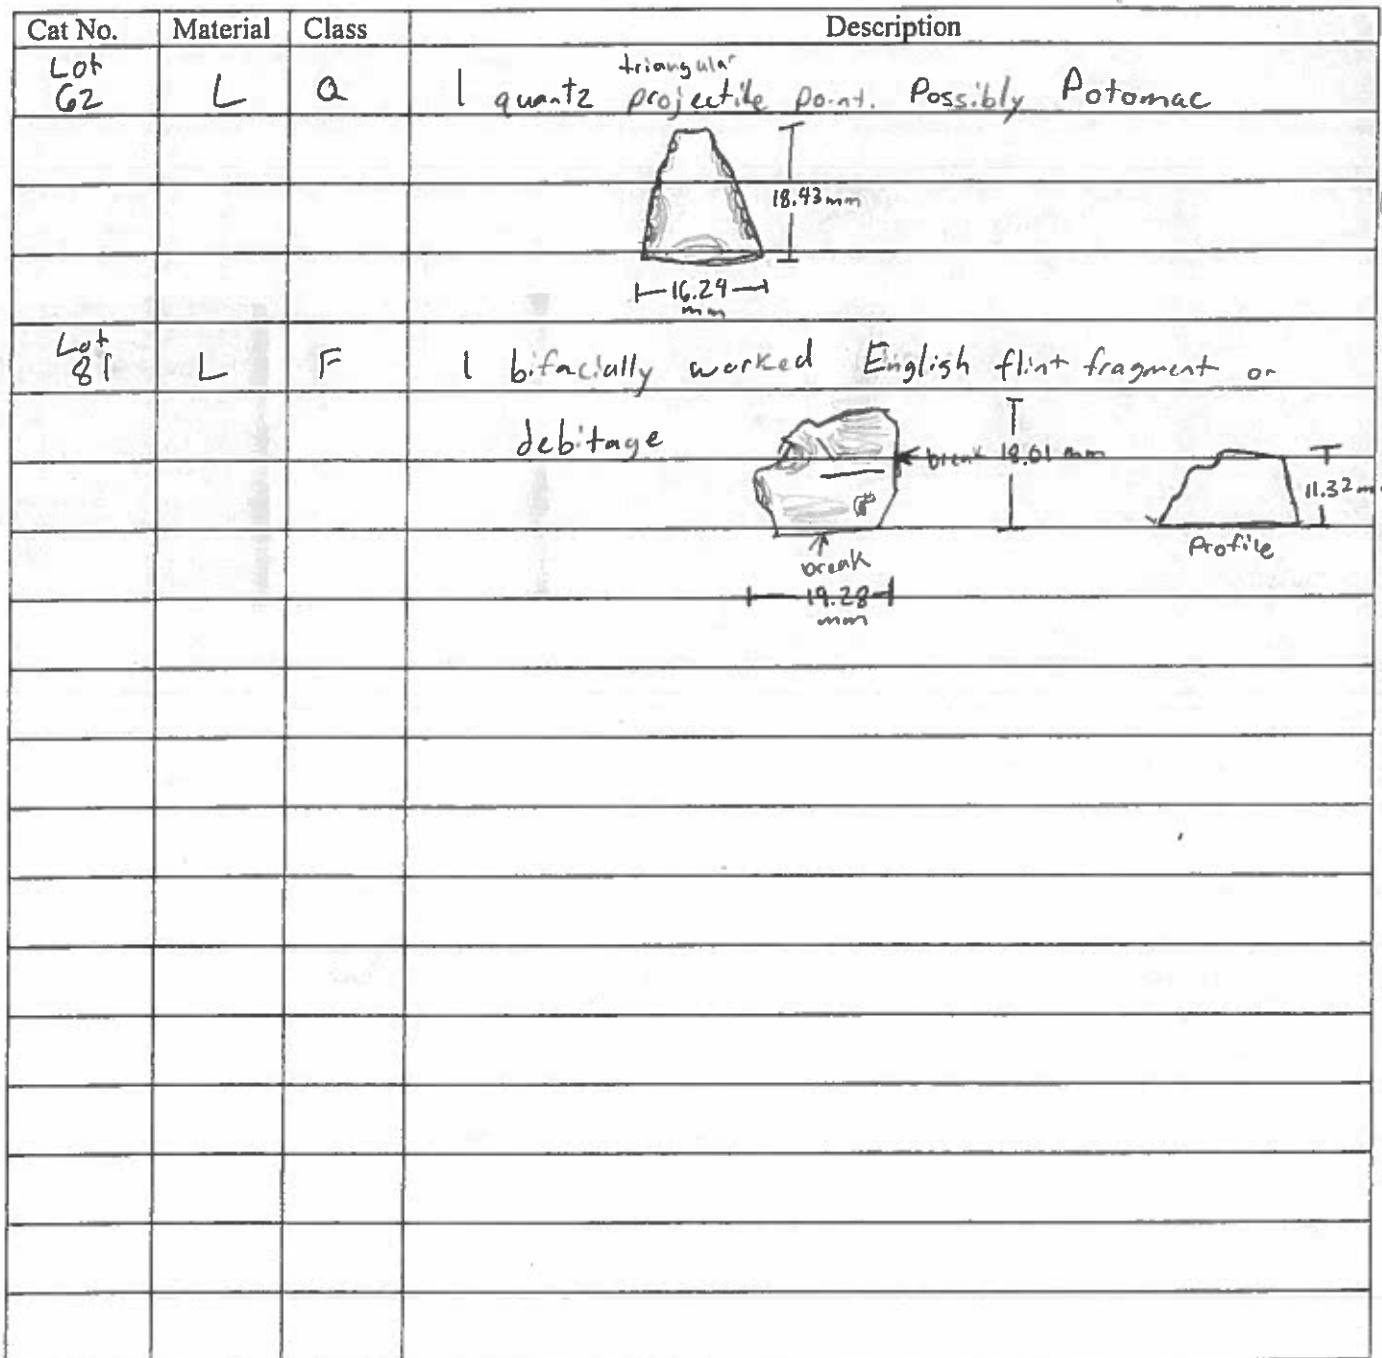 Cat No. Material Class Description
Lot
62 L Q 1 quartz triangular projectile point. Possibly Potomac
18.43 mm
16.24
mm
Lot
81 L F 1 bifacially worked English flint fragment or
debitage
break 18.01 mm
11.32 m
Profile
break
19.28
mm